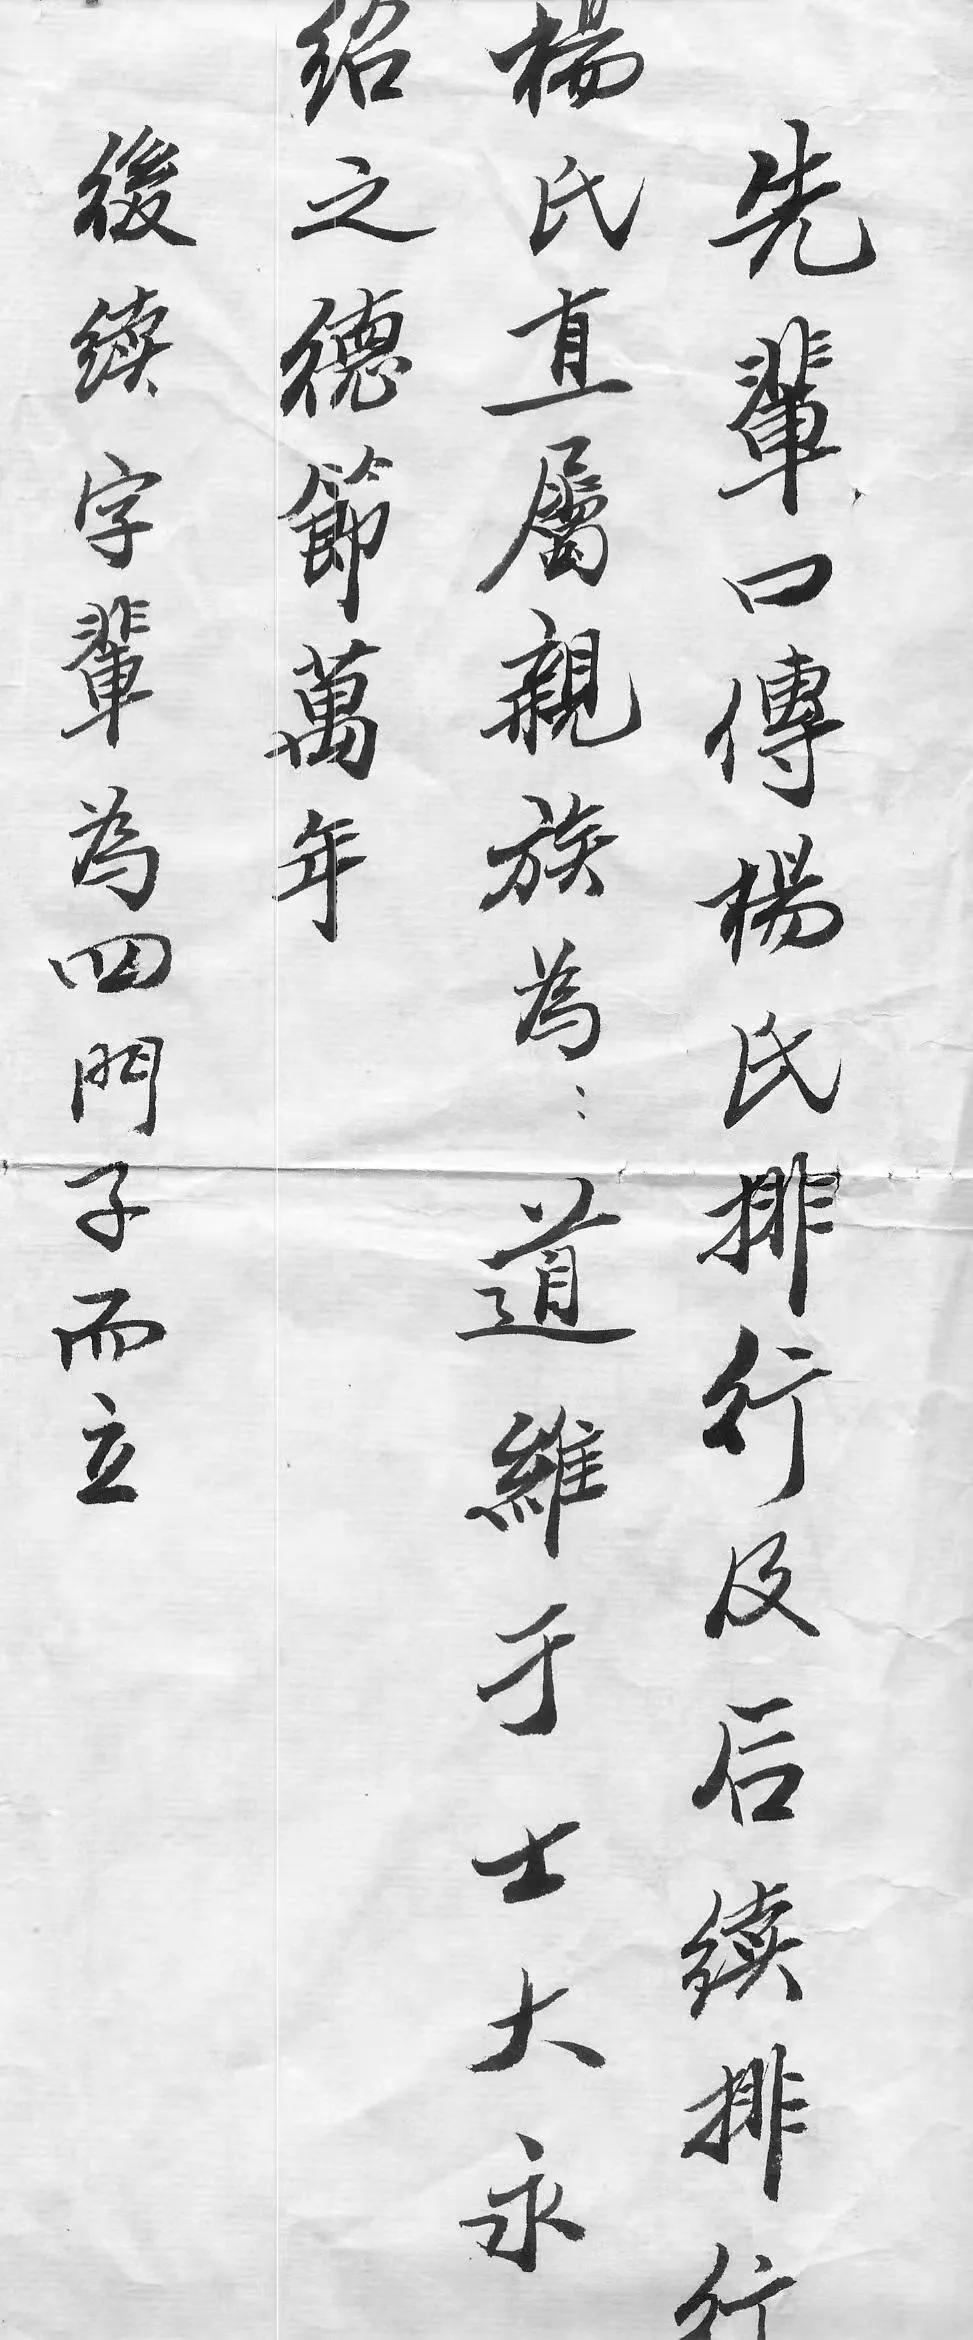 先輩口傳楊氏排行及后续排行
楊氏直屬親族為：道維于士大永
绍之德節萬年
後续字輩為四門子而立